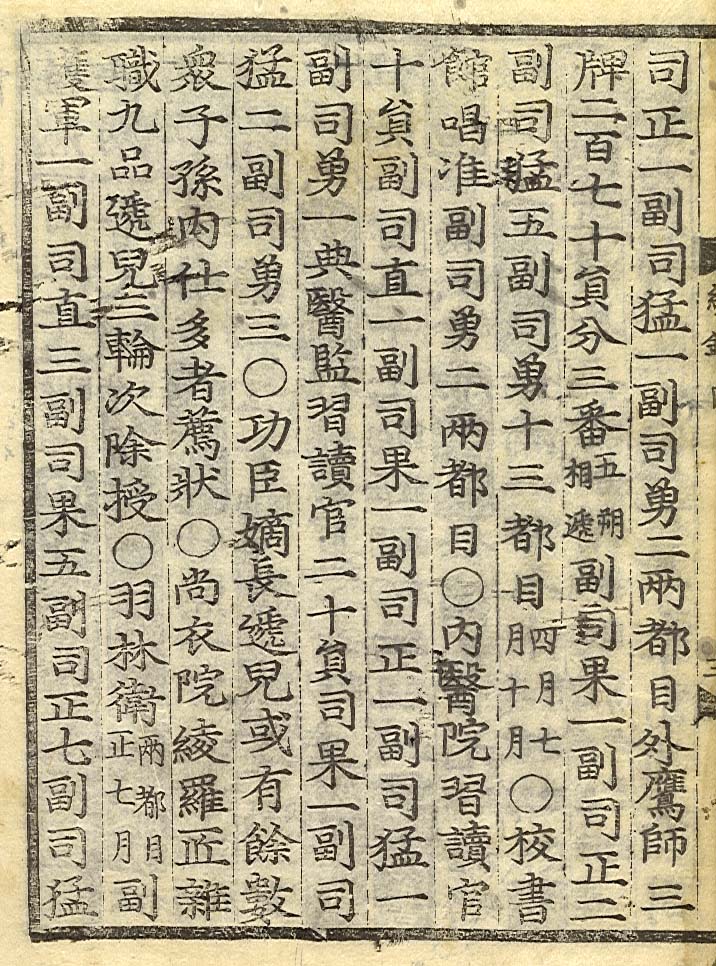 司正一副司猛一副司勇二兩都目外鷹師三
牌二百七十負分三番五朔相遞副司果一副司正二
副司猛五副司勇十三都目四月七月十月○校書
館唱准副司勇二兩都目○內醫院習讀官
十負副司直一副司果一副司正一副司猛一
副司勇一典醫監習讀官二十負司果一副司
猛二副司勇三○功臣嫡長遞兒或有餘數
衆子孫內仕多者薦狀○尙衣院綾羅匠雜
職九品遞兒三輪次除授○羽林衛兩都目正七月副
護軍一副司直三副司果五副司正七副司猛